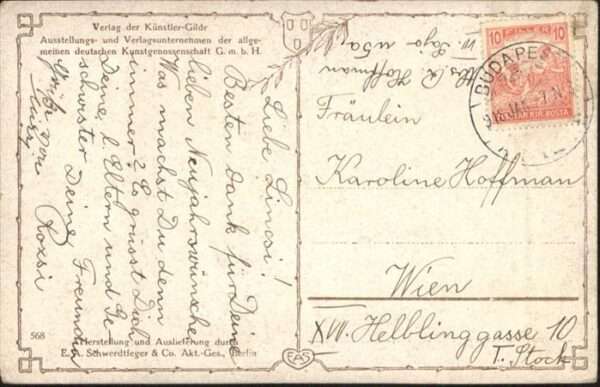 Verlag der Künstler-Gilde
Ausstellungs- und Verlagsunternehmen der allge-
meinen deutschen Kunstgenossenschaft G. m. b. H.
Liebe Lincsi!
Besten Dank für Deine
lieben Neujahrswünsche
Was machst Du denn
immer? Es grüsst Dich
Deine l. Eltern und Ge-
schwister Deine Freundin
Rozsi
Grüsse von
568
Herstellung und Auslieferung durch
E. A. Schwerdtfeger & Co. Akt.-Ges., Berlin
EAS
10 FILLÉR 10
MAGYAR KIR. POSTA
BUDAPEST
Abs. R. Hoffman
Fräulein
Karoline Hoffman
Wien
XVI. Helblinggasse 10
T. Stock